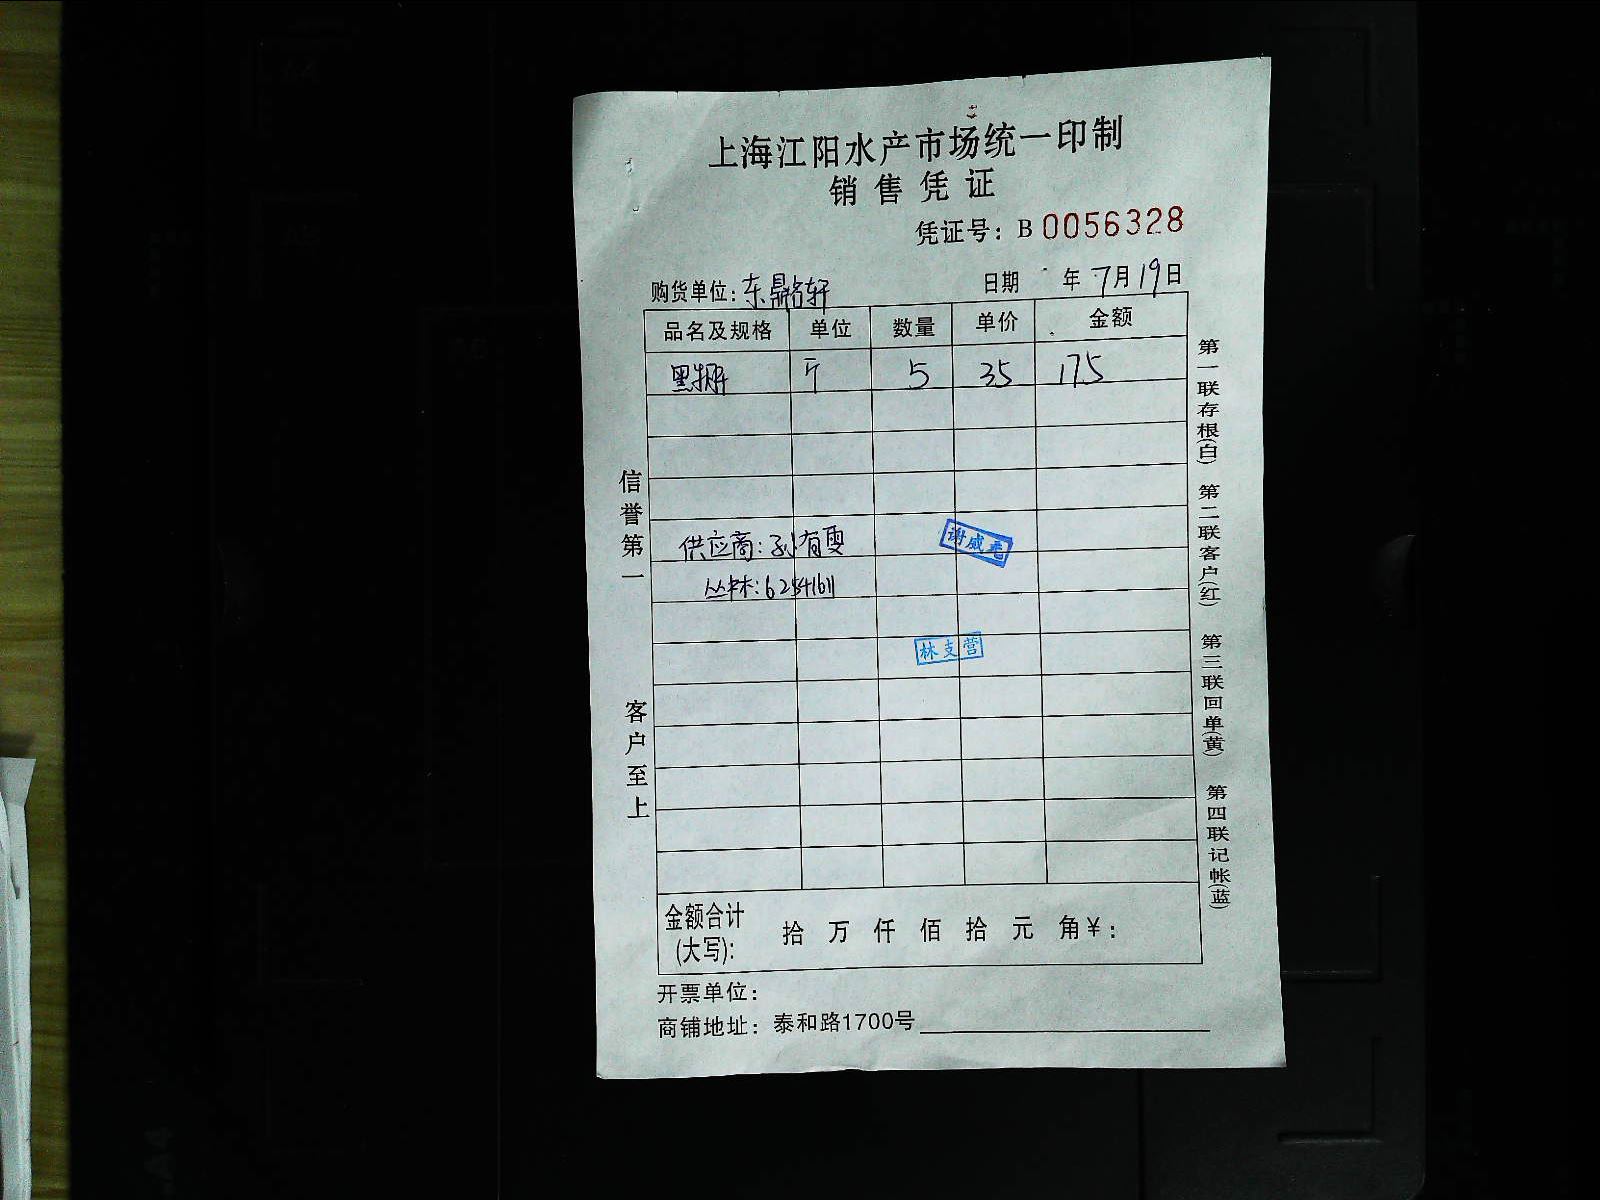 上海江阳水产市场统一印制
销售凭证
凭证号：B 0056328
购货单位：东鼎轩 日期 年 7月19日
品名及规格 单位 数量 单价 金额
黑 斤 5 35 175
供应商：孙有雯
丛林：62541611
谢威
林支营
信誉第一
客户至上
第一联存根(白) 第二联客户(红) 第三联回单(黄) 第四联记帐(蓝)
金额合计(大写)： 拾 万 仟 佰 拾 元 角 ¥：
开票单位：
商铺地址：泰和路1700号